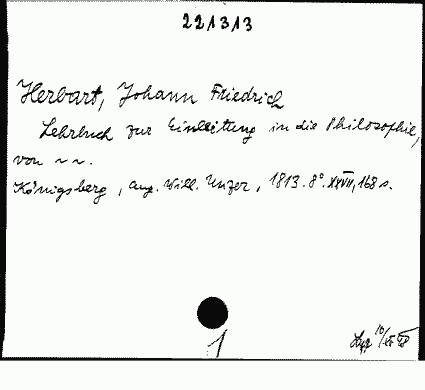 221313
Herbart, Johann Friedrich
Lehrbuch zur Einleitung in die Philosophie,
von ~ ~.
Königsberg, aug. Will. Unzer, 1813. 8° XXVII, 168 s.
1